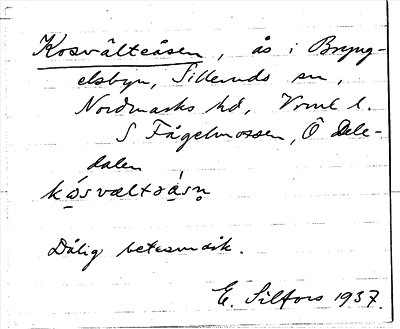 Kosvälteåsen, ås i Bryng-
elsbyn, Silleruds sn,
Nordmarks hd, Vrml l.
S Fågelmossen, Ö Dele-
dalen
kósvæltəåsn̥
Dålig betesmark.
E. Silfors 1937.